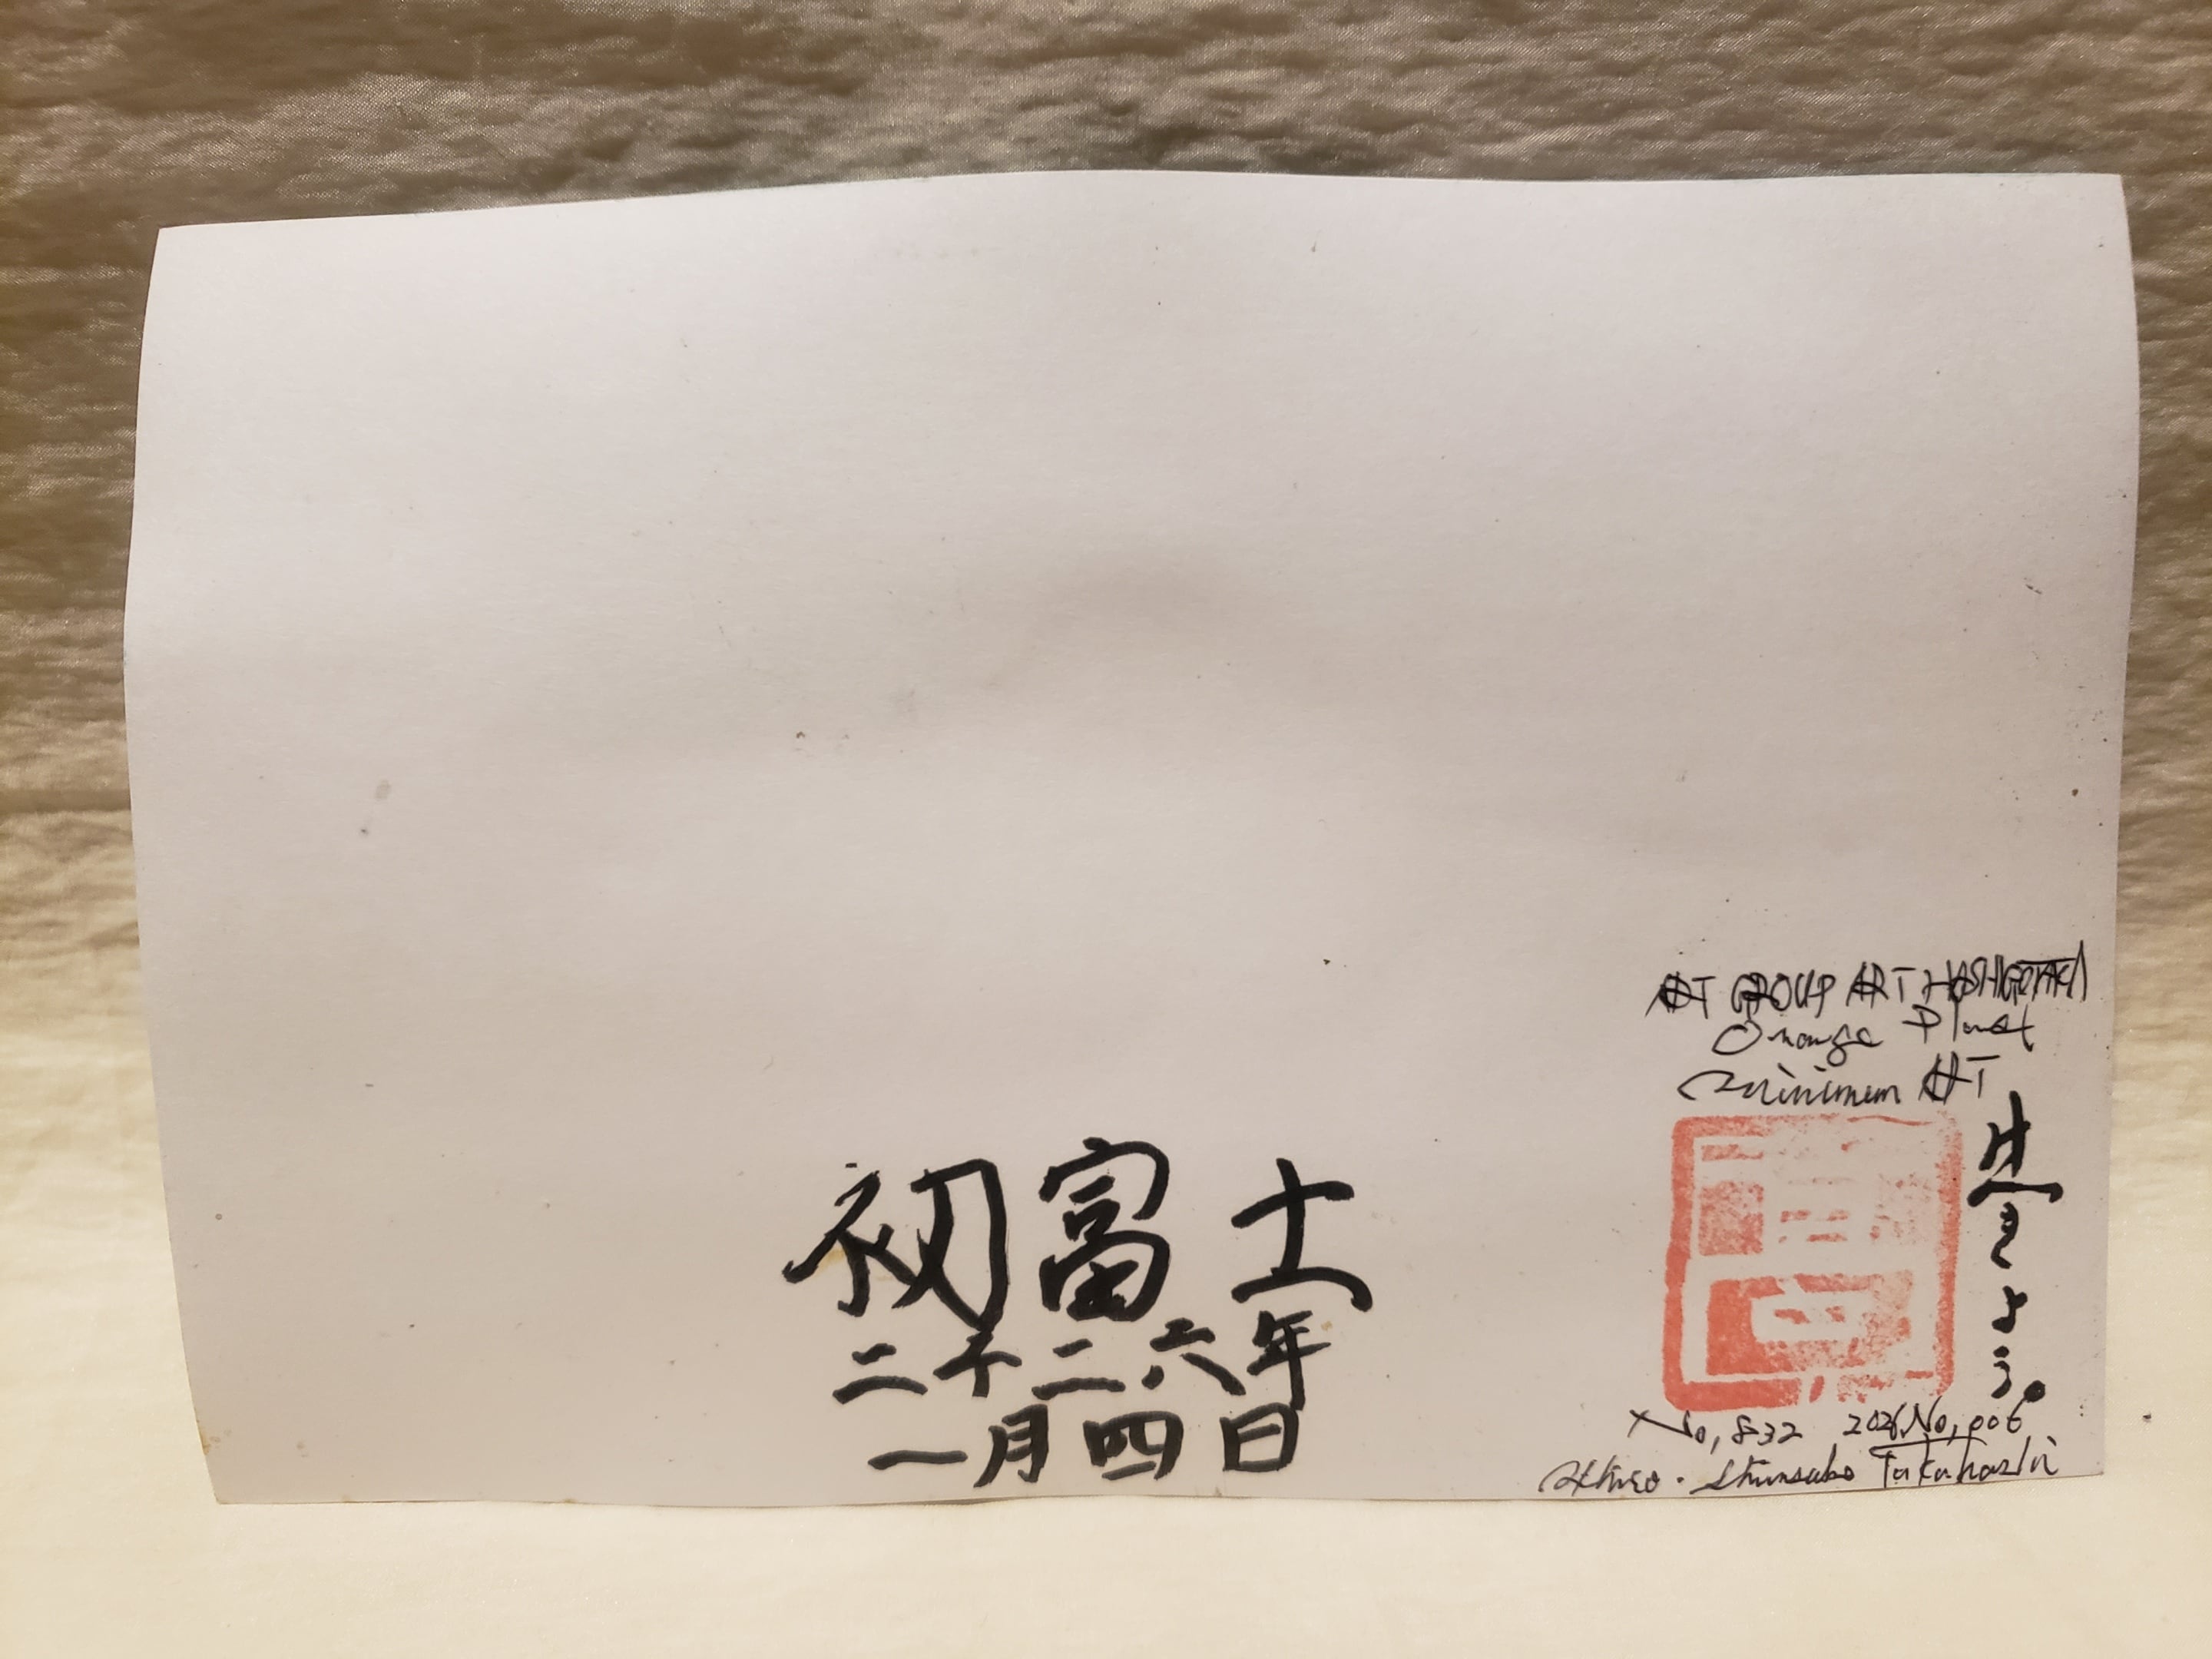 初富士
二千二六年
一月四日
HT GROUP ART HASHIGOTAKA
Orange Planet
Minimum HT
きょう。
No,832 2026,No,006
Shunsaku Takahashi